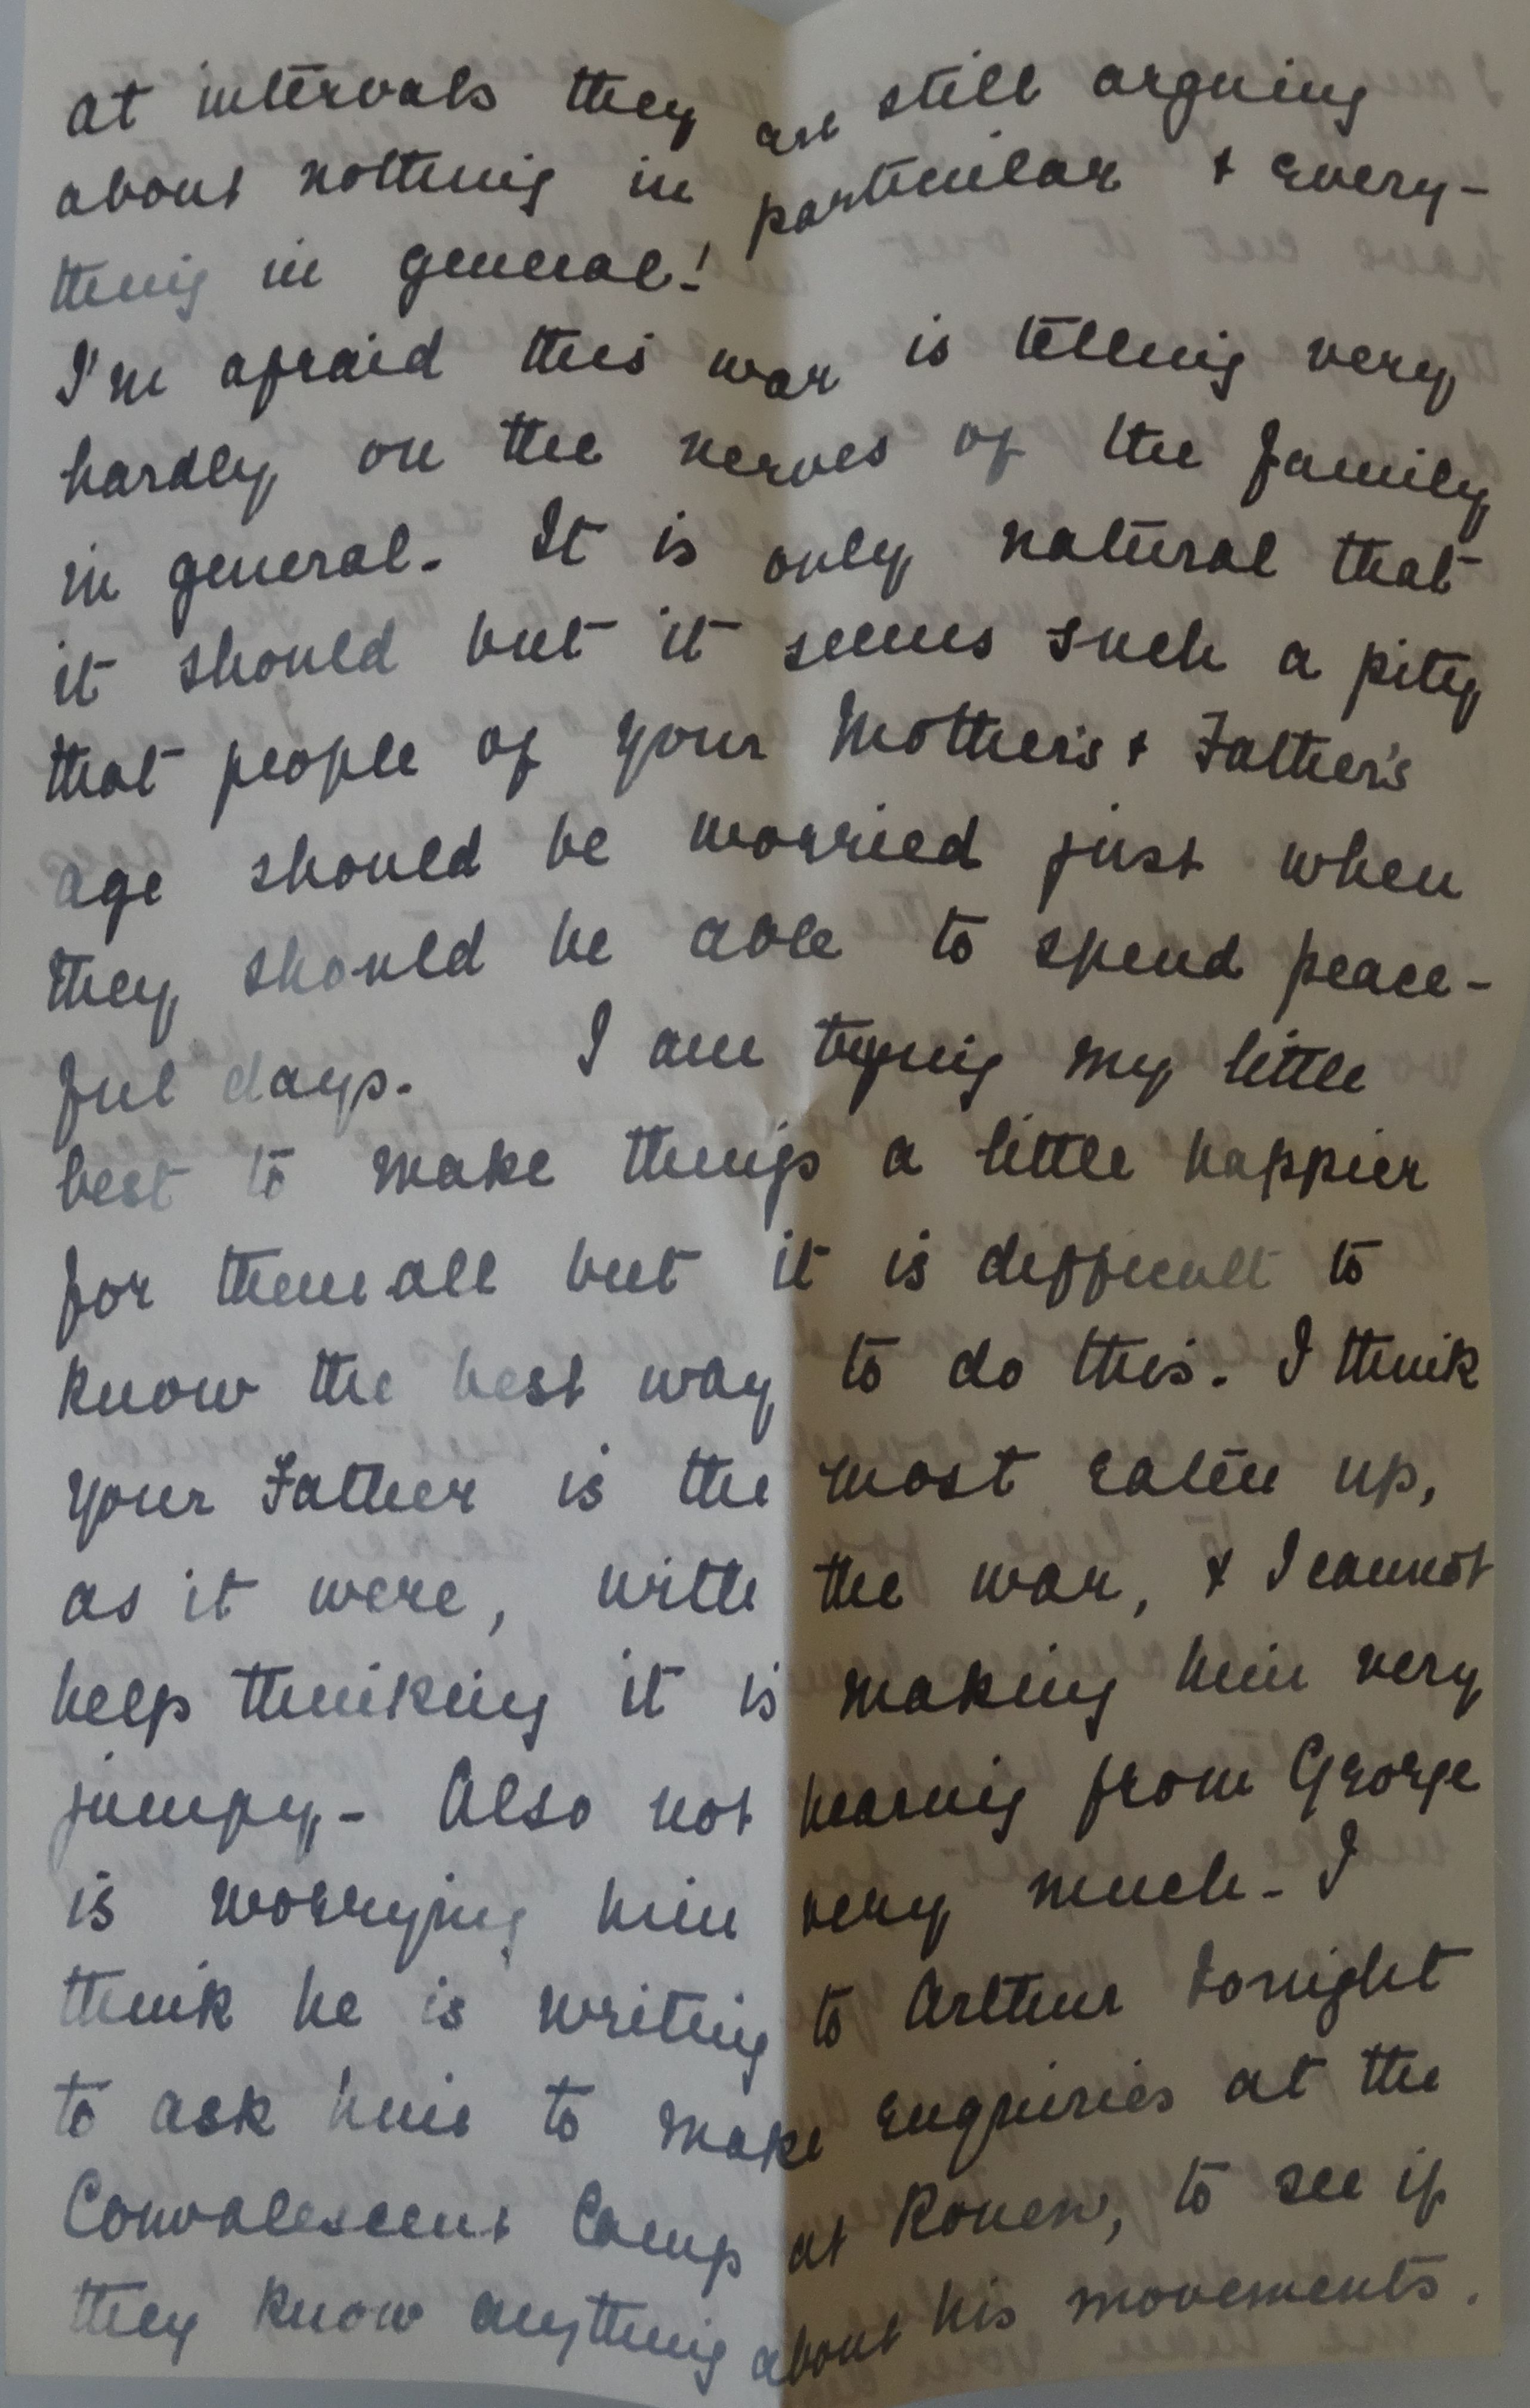 at intervals they are still arguing
about nothing in particular & every-
thing in general!
I'm afraid this war is telling very
hardly on the nerves of the family
in general. It is only natural that
it should but it seems such a pity
that people of your Mother's & Father's
age should be worried just when
they should be able to spend peace-
ful days. I am trying my little
best to make things a little happier
for them all but it is difficult to
know the best way to do this. I think
your Father is the most eaten up,
as it were, with the war, & I cannot
help thinking it is making him very
jumpy - Also not hearing from George
is worrying him very much - I
think he is writing to Arthur tonight
to ask him to make enquiries at the
Convalescent Camp at Rouen, to see if
they know anything about his movements.